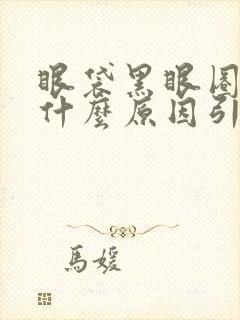 眼袋黑眼圈
什麼原因引
馬媛